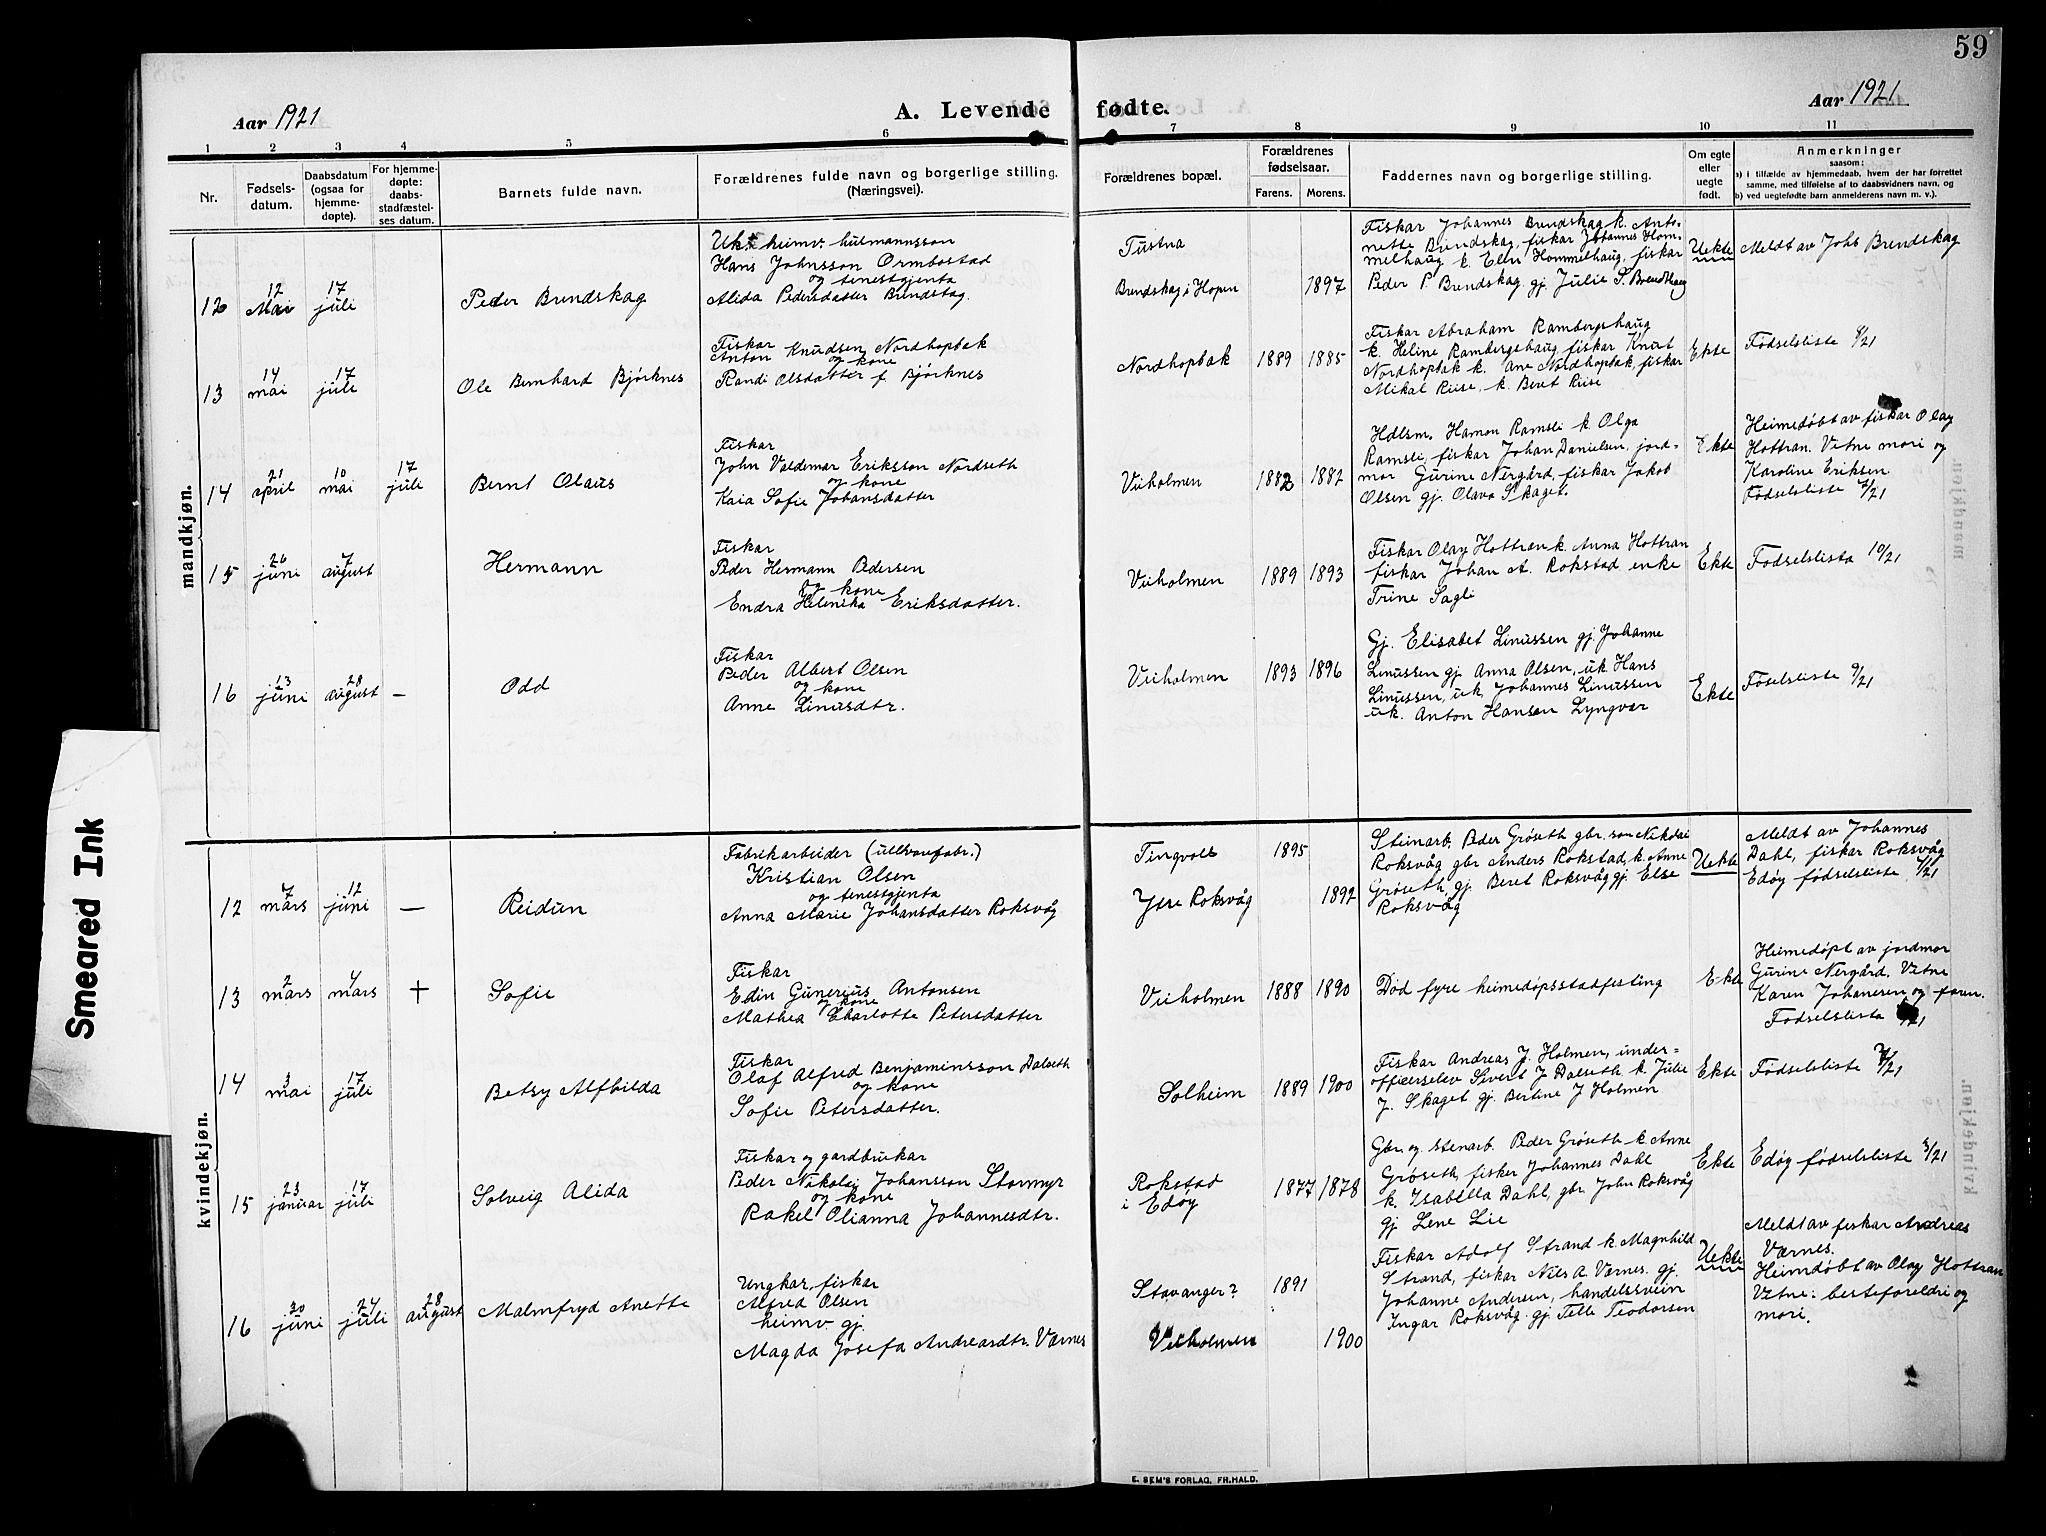 59
Aar 1921
A. Levende fødte.
Aar 1921
1 2 3 4 5 6 7 8 9 10 11
Nr.
Fødsels-
datum.
Daabsdatum
(ogsaa for
hjemme-
døpte).
For hjemme-
døpte:
daabs-
stadfæstel-
ses datum.
Barnets fulde navn.
Forældrenes fulde navn og borgerlige stilling.
(Næringsvei).
Forældrenes bopæl.
Forældrenes
fødselsaar.
Farens. Morens.
Faddernes navn og borgerlige stilling.
Om egte
eller
uegte
født.
Anmerkninger
saasom:
a) i tilfælde av hjemmedaab, hvem der har forrettet
samme, med tilføielse af to daabsvidners navn, og
b) ved uegtefødte barn anmelderens navn m. v.).
mandkjøn.
12
12 Mai
17 juli
Peder Brendskag
Uk. heimv. husmannsson
Hans Johnsson Ormbostad
og tenestgjenta
Alida Pedersdatter Brendskag.
Tustna
Brendskag i Hopen
1897
Fiskar Johannes Brendskag k. Anto-
nette Brendskag, fiskar Johannes Hom-
melhaug k. Elen Hommelhaug, fiskar
Peder P. Brendskag gj. Julie S. Brendskag
Uekte
Meldt av Johs Brendskag
13
14 mai
17 juli
Ole Bernhard Bjørknes
Fiskar
Anton Knudsen Nordhopbak
og kone
Randi Olsdatter f. Bjørknes
Nordhopbak
1889 1885
Fiskar Abraham Rambergshaug
k. Heline Rambergshaug, fiskar Knut
Nordhopbak k. Ane Nordhopbak, fiskar
Mikal Riise, k. Beret Riise
Ekte
Fødselsliste 8/21
14
21 april
10 mai
17 juli
Bernt Olaus
Fiskar
John Valdemar Eriksson Nordseth
og kone
Kaia Sofie Johansdatter
Veiholmen
1882 1882
Hdlsm. Hamon Ramsli k. Olga
Ramsli, fiskar Johan Danielsen, jord-
mor Gurine Nergård, fiskar Jakob
Olsen gj. Olava Skaget.
Ekte
Heimedøbt av fiskar Olay
Hottran. Vitne mori og
Karoline Eriksen
Fødselsliste 7/21
15
26 juni
7 august
Hermann
Fiskar
Peder Hermann Pedersen
og kone
Endra Helenika Eriksdatter.
Veiholmen
1889 1893
Fiskar Olay Hottran k. Anna Hottran
fiskar Johan A. Rokstad enke
Trine Sagli
Ekte
Fødselslista 10/21
16
13 juni
28 august
—
Odd
Fiskar
Peder Albert Olsen
og kone
Anne Linusdtr.
Veiholmen
1893 1896
Gj. Elisabet Linussen gj. Johanne
Linussen gj. Anna Olsen, uk. Hans
Linussen, uk. Johannes Linussen
uk. Anton Hansen Lyngvær
Ekte
Føselsliste 9/21
kvindekjøn.
12
7 mars
12 juni
—
Reidun
Fabrikarbeider (ullvarefabr.)
Kristian Olsen
og tenestgjenta
Anna Marie Johansdatter Roksvåg
Tingvoll
Ytre Roksvåg
1895
1892
Steinarb. Peder Grøseth gbr. son Nikolai
Roksvåg gbr Anders Rokstad, k. Anne
Grøseth, gj. Beret Roksvåg gj. Else
Roksvåg
Uekte
Meldt av Johannes
Dahl, fiskar Roksvåg
Edøy fødselsliste 4/21
13
2 mars
4 mars
+
Sofie
Fiskar
Edin Gunerius Antonsen
og kone
Mathea Charlotte Petersdatter
Veiholmen
1888 1890
Død fyre heimedøpsstadfesting
Ekte
Heimedøpt av jordmor
Gurine Nergård, Vitne
Karen Johansen og faren.
Fødselsliste /21
14
3 mai
17 juli
Betsy Alfhilda
Fiskar
Olaf Alfred Benjaminsson Dalseth
og kone
Sofie Petersdatter.
Solheim
1889 1900
Fiskar Andreas J. Holmen, under-
officerselev Sivert J Dalseth k. Julie
J. Skaget gj. Bertine J Holmen
Ekte
Fødselsliste 7/21
15
23 januar
17 juli
Solveig Alida
Fiskar og gardbrukar
Peder Nikolai Johansson Stormyr
og kone
Rakel Olianna Johannesdtr.
Rokstad
i Edøy
1877 1878
Gbr. og stenarb. Peder Grøseth k. Anne
Grøseth, fisker Johannes Dahl
k. Isabella Dahl, gbr. John Roksvåg
gj Lene Lie
Ekte
Edøy fødselsliste 3/21
16
20 juni
24 juli
28 august
Malmfryd Anette
Ungkar, fiskar
Alfred Olsen
heimv. gj.
Magda Josefa Andreasdtr. Værnes
Stavanger?
Veiholmen
1891
1900
Fiskar Adolf Strand k. Magnhild
Strand, fiskar Nils A. Værnes. gj.
Johanne Andersen, handelssvein
Ingar Roksvåg. gj Telle Teodorsen
Uekte
Meldt av fiskar Andreas
Værnes.
Heimdøbt av Olay Hottran
Vitne: besteforeldri og
mori.
E. SEM'S FORLAG, FR.HALD.
Smeared Ink